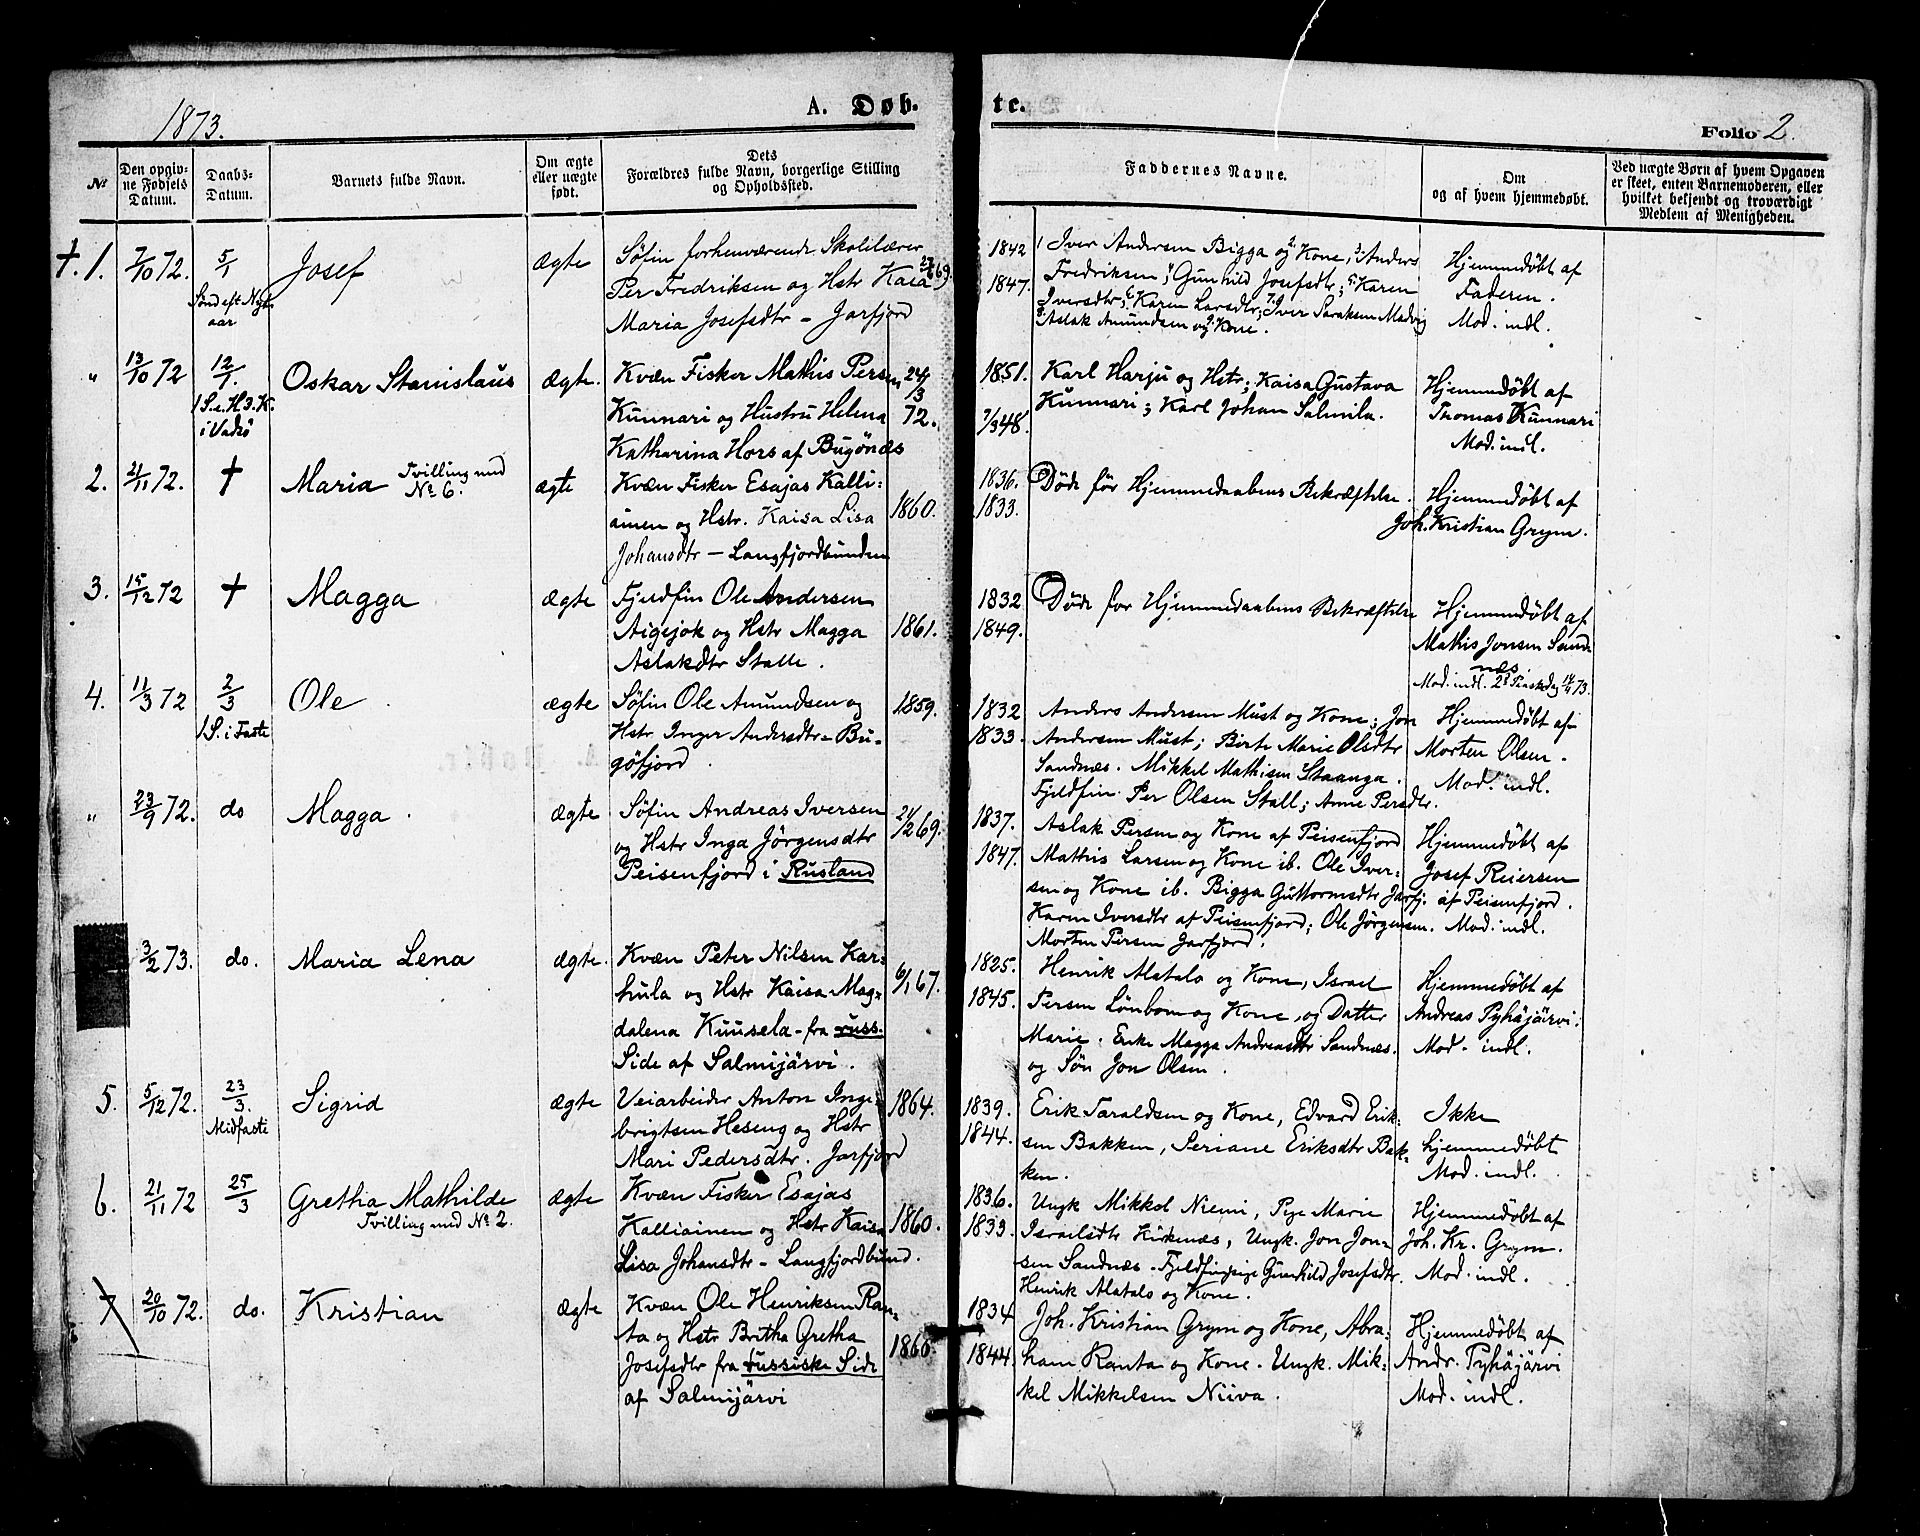 1873.
A. Døb-
te.
Folio 2.
№
Den opgiv-
ne Fødsels
Datum.
Daabs-
Datum.
Barnets fulde Navn.
Om ægte
eller uægte
født.
Dets
Forældres fulde Navn, borgerlige Stilling
og Opholdssted.
Faddernes Navne.
Om
og af hvem hjemmedøbt.
Ved uægte Børn af hvem Opgaven
er skeet, enten Barnemoderen, eller
hvilket bekjendt og troværdigt
Medlem af Menigheden.
† 1. 7/10 72. 5/1
Sønd. eft. Nyt-
aar
Josef
ægte
Søfin forhenværende Skolelærer
Per Fredriksen og Hstr Kaia
Maria Josefsdtr – Jarfjord
27/6 69.
1842
1847.
1 Iver Andersen Bigga og 2. Kone, 3. Anders
Fredriksen, 4 Gunhild Josefsdtr; 5. Karen
Iversdtr; 6. Karen Larsdtr; 7. Iver Saraksen Madvig
8. Aslak Amundsen og 9. Kone.
Hjemmedøbt af
Faderen.
Mod. indl.
" 13/10 72 12/1.
1 S. e. H. 3. K.
i Vadsö
Oskar Stanislaus
ægte.
Kvæn Fisker Mathis Persen
Kunnari og Hustru Helena
Katharina Hors af Bugönæs
24/3
72.
1851.
7/3 48.
Karl Harju og Hstr; Kaisa Gustava
Kunnari; Karl Johan Salmila.
Hjemmedøbt af
Thomas Kunnari
Mod. indl.
2. 21/11 72. †
Maria Tvilling med
№ 6.
ægte
Kvæn Fisker Esajas Kalli-
ainen og Hstr. Kaisa Lisa
Johansdtr – Langfjordbunden
1860.
1836.
1833.
Døde før Hjemmedaabens Bekræftelse.
Hjemmedøbt af
Joh. Kristian Grym.
3. 15/12 72 †
Magga
ægte
Fjeldfin Ole Andersen
Aigejok og Hstr Magga
Aslakdtr Stalle.
1861.
1832
1849.
Døde før Hjemmedaabens Bekræftelse
Hjemmedøbt af
Mathis Jonsen Sand-
næs.
4. 11/3 72 2/3
1 S. i Faste
Ole
ægte
Søfin Ole Amundsen og
Hstr Inger Andersdtr – Bu-
göfjord.
1859.
1832
1833.
Anders Andersen Must og Kone; Jon
Andersen Must; Birte Marie Olsdtr
Sandnæs. Mikkel Mathisen Staanga.
Fjeldfin Per Olsen Stall; Anne Persdtr.
Mod. indl. 2den Pinsedag
Hjemmedøbt af
Morten Olsen.
Mod. indl.
" 23/9 72. do
Magga.
ægte
Søfin Andreas Iversen
og Hstr Inga Jörgensdtr
Peisenfjord i Rusland
21/2 69.
1837.
1847.
Aslak Persen og Kone af Peisenfjord
Mathis Larsen og Kone ib. Ole Iver-
sen og Kone ib. Bigga Guttormsdtr Jarfj.
Karen Iversdtr af Peisenfjord; Ole Jörgensen.
Morten Persen Jarfjord.
Hjemmedøbt af
Josef Reiersen
af Peisenfjord.
Mod. indl.
3/2 73. do.
Maria Lena
ægte.
Kvæn Peter Nilsen Kar-
hula og Hstr Kaisa Mag-
dalena Kuusela – fra russ.
Side af Salmijärvi.
6/1 67.
1825.
1845.
Henrik Alatalo og Kone, Israel
Persen Lönbom og Kone, og Datter
Marie. Enke Magga Andreasdtr Sandnæs.
og Sön Jon Olsen.
Hjemmedøbt af
Andreas Pyhäjärvi.
Mod. indl.
5. 5/12 72. 23/3.
Midfaste
Sigrid
ægte
Veiarbeider Anton Inge-
brigtsen Heseng og Hstr
Mari Pedersdtr. Jarfjord
1864.
1839.
1844.
Erik Taraldsen og Kone, Edvard Erik-
sen Bakken, Seriane Eriksdtr Bak-
ken.
Ikke
hjemmedøbt
Mod. indl.
6. 21/11 72 25/3
Gretha Mathilde
Tvilling med № 2.
ægte
Kvæn Fisker Esajas
Kalliainen og Hstr Kaisa
Lisa Johansdtr – Langfjordbund.
1860.
1836.
1833.
Ungk Mikkel Niemi, Pige Marie
Israelsdtr Kirkenæs, Ungk. Jon Jon-
sen Sandnæs. Fjeldfinpige Gunhild Josefsdtr.
Henrik Alatalo og Kone.
Hjemmedøbt af
Joh. Kr. Grym.
Mod. indl.
7 20/10 72. do.
Kristian
ægte
Kvæn Ole Henriksen Ran-
ta og Hstr Britha Gretha
Josefsdtr fra russiske Side
af Salmijärvi
1866.
1834
1844.
Joh. Kristian Grym og Kone, Abra-
ham Ranta og Kone. Ungk. Mik-
kel Mikkelsen Niiva.
Hjemmedøbt af
Andr. Pyhäjärvi
Mod. indl.